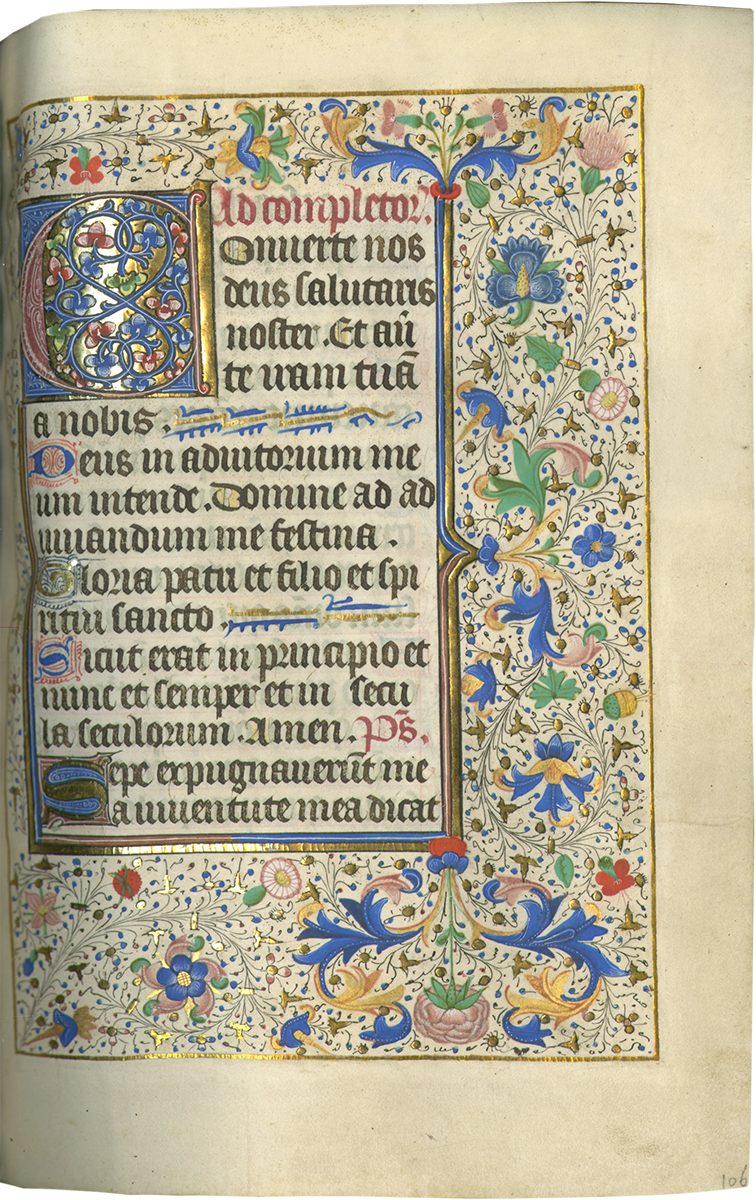 Ad completor.
Conuerte nos
deus salutaris
noster. Et au̅
te iram tuā
a nobis.
Deus in adiutorium me
um intende. Domine ad ad
iuuandum me festina.
Gloria patri et filio et spi
ritui sancto.
Sicut erat in principio et
nunc et semper et in secu
la seculorum. Amen. Ps̄.
Sepe expugnauerūt me
a iuuentute mea dicat
106